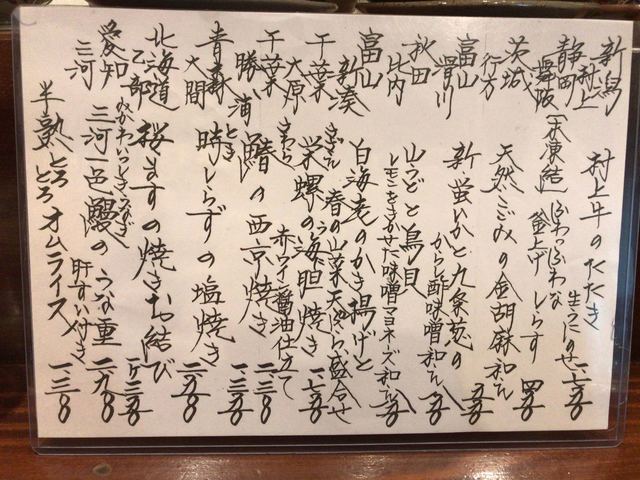 新潟 村上 村上牛のたたき 生うにのせ 一七〇〇
静岡 舞阪 (未凍結)ふわっふわな 釜上げしらす
茨城 行方 天然ごみの金胡麻和え
富山 滑川 新・蛍いかと九条葱の からし酢味噌和え
秋田 比内 山うどと鳥貝 レモンをきかせた味噌マヨネーズ和え
富山 新湊 白海老のかき揚げと 春の山菜天ぷら盛合せ
千葉 大原 さざえ 栄螺の海胆焼き 赤ワイン醤油仕立て
千葉 勝浦 さわら 鰆の西京焼き 一三〇〇
青森 大間 とき 時しらずの塩焼き
北海道 乙部 桜ますの焼きお結び
愛知 三河 みかわいしきうなぎ 三河一色鰻のうな重 肝すい付き
半熟とろとろオムライス 一三〇〇